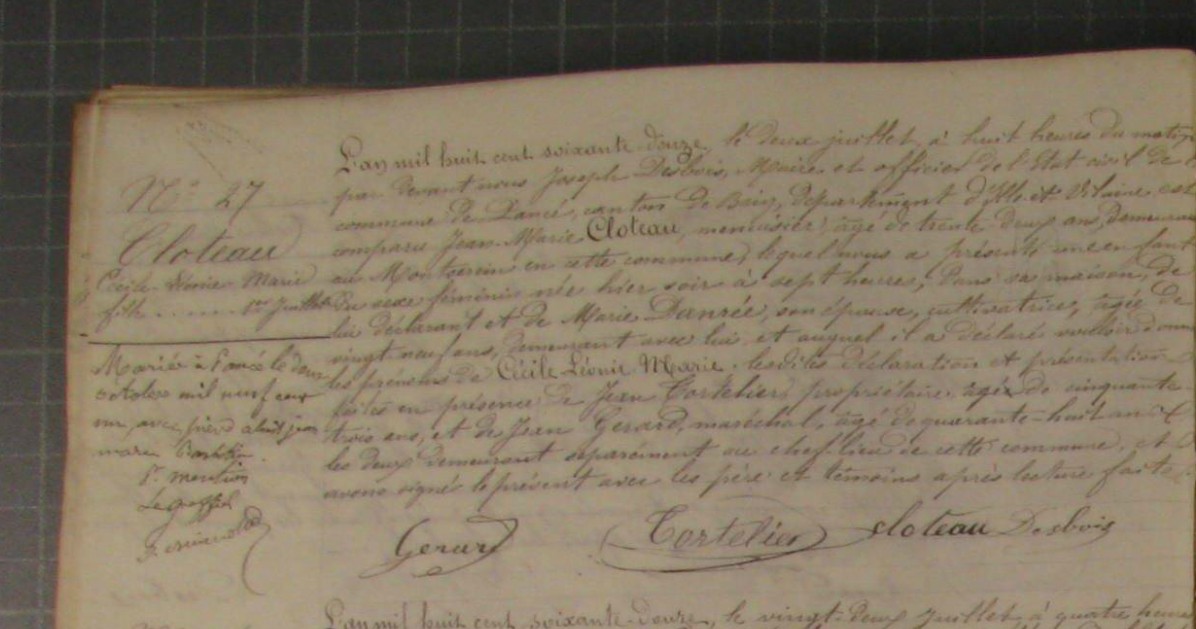 N° 27
Cloteau
Cécile Léonie Marie
fille 1er Juillet
Mariée à Pancé le deux
octobre mil neuf cent
un, avec
marie
Pr mention
Le greffier
L'an mil huit cent soixante-douze, le deux juillet, à huit heures du matin
par devant nous Joseph Desbois, Maire et officier de l'Etat civil de
commune de Pancé, canton de Bain, département d'Ille-et-Vilaine, est
comparu Jean-Marie Cloteau, menuisier, âgé de trente deux ans, demeurant
au Montserein en cette commune, lequel nous a présenté une enfant
du sexe féminin née hier soir à sept heures, dans sa maison, de
lui déclarant et de Marie Danrée, son épouse, cultivatrice, âgée de
vingt neuf ans, demeurant avec lui et auquel il a déclaré vouloir donner
les prénoms de Cécile Léonie Marie. lesdites déclaration et présentation
faites en présence de Jean Tortelier, propriétaire, âgé de cinquante
trois ans, et de Jean Gerard, maréchal, âgé de quarante-huit ans
les deux demeurant séparément au chef-lieu de cette commune, et
avons signé le présent avec les père et témoins après lecture faite.
Gerard Tortelier Cloteau Desbois
L'an mil huit cent soixante-douze, le vingt-deux juillet, à quatre heures